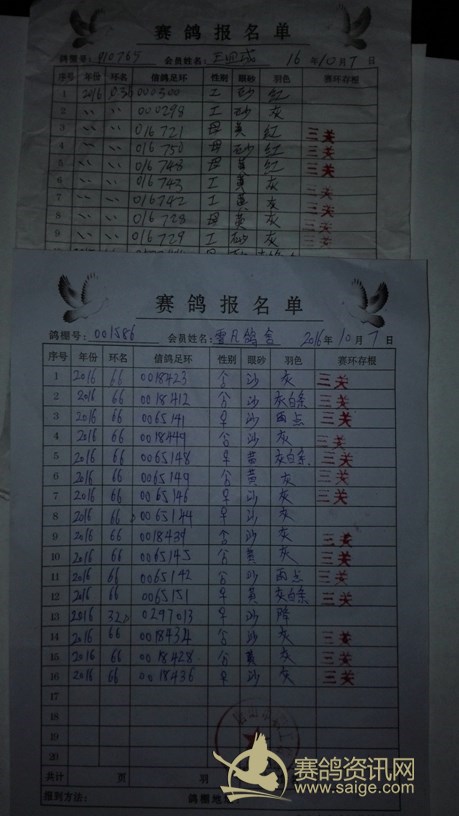 赛鸽报名单
鸽棚号: 910765 会员姓名: 16年10月7日
序号 年份 环名 信鸽足环 性别 眼砂 羽色 赛环存根
1 2016 000300 工 砂 红
2 〃 〃 000298 工 砂 灰
3 〃 〃 016721 母 黄 红 三关
4 〃 〃 016750 母 砂 红 三关
5 〃 〃 016748 母 黄 红 三关
6 〃 〃 016743 工 黄 灰 三关
7 〃 〃 016742 工 黄 灰 三关
8 〃 〃 016728 母 黄 灰 三关
9 〃 〃 016729 工 砂 灰 三关
赛鸽报名单
鸽棚号: 001886 会员姓名: 雪凡鸽舍 2016年10月7日
序号 年份 环名 信鸽足环 性别 眼砂 羽色 赛环存根
1 2016 66 0018423 沙 灰 三关
2 2016 66 0018412 沙 灰白条 三关
3 2016 66 0065141 沙 雨点 三关
4 2016 66 0018449 沙 灰 三关
5 2016 66 0065148 黄 灰白条 三关
6 2016 66 0065149 黄 灰 三关
7 2016 66 0065146 沙 灰 三关
8 2016 66 0065144 沙 灰
9 2016 66 0018439 沙 灰 三关
10 2016 66 0065145 黄 灰 三关
11 2016 66 0065142 沙 雨点 三关
12 2016 66 0065151 黄 灰白条 三关
13 2016 32 0297013 沙 降
14 2016 66 0018434 沙 灰 三关
15 2016 66 0018428 黄 灰 三关
16 2016 66 0018436 沙 灰 三关
17
18
19
20
共计 页 羽
报到方法: 鸽棚地
赛鸽资讯网
www.saige.com